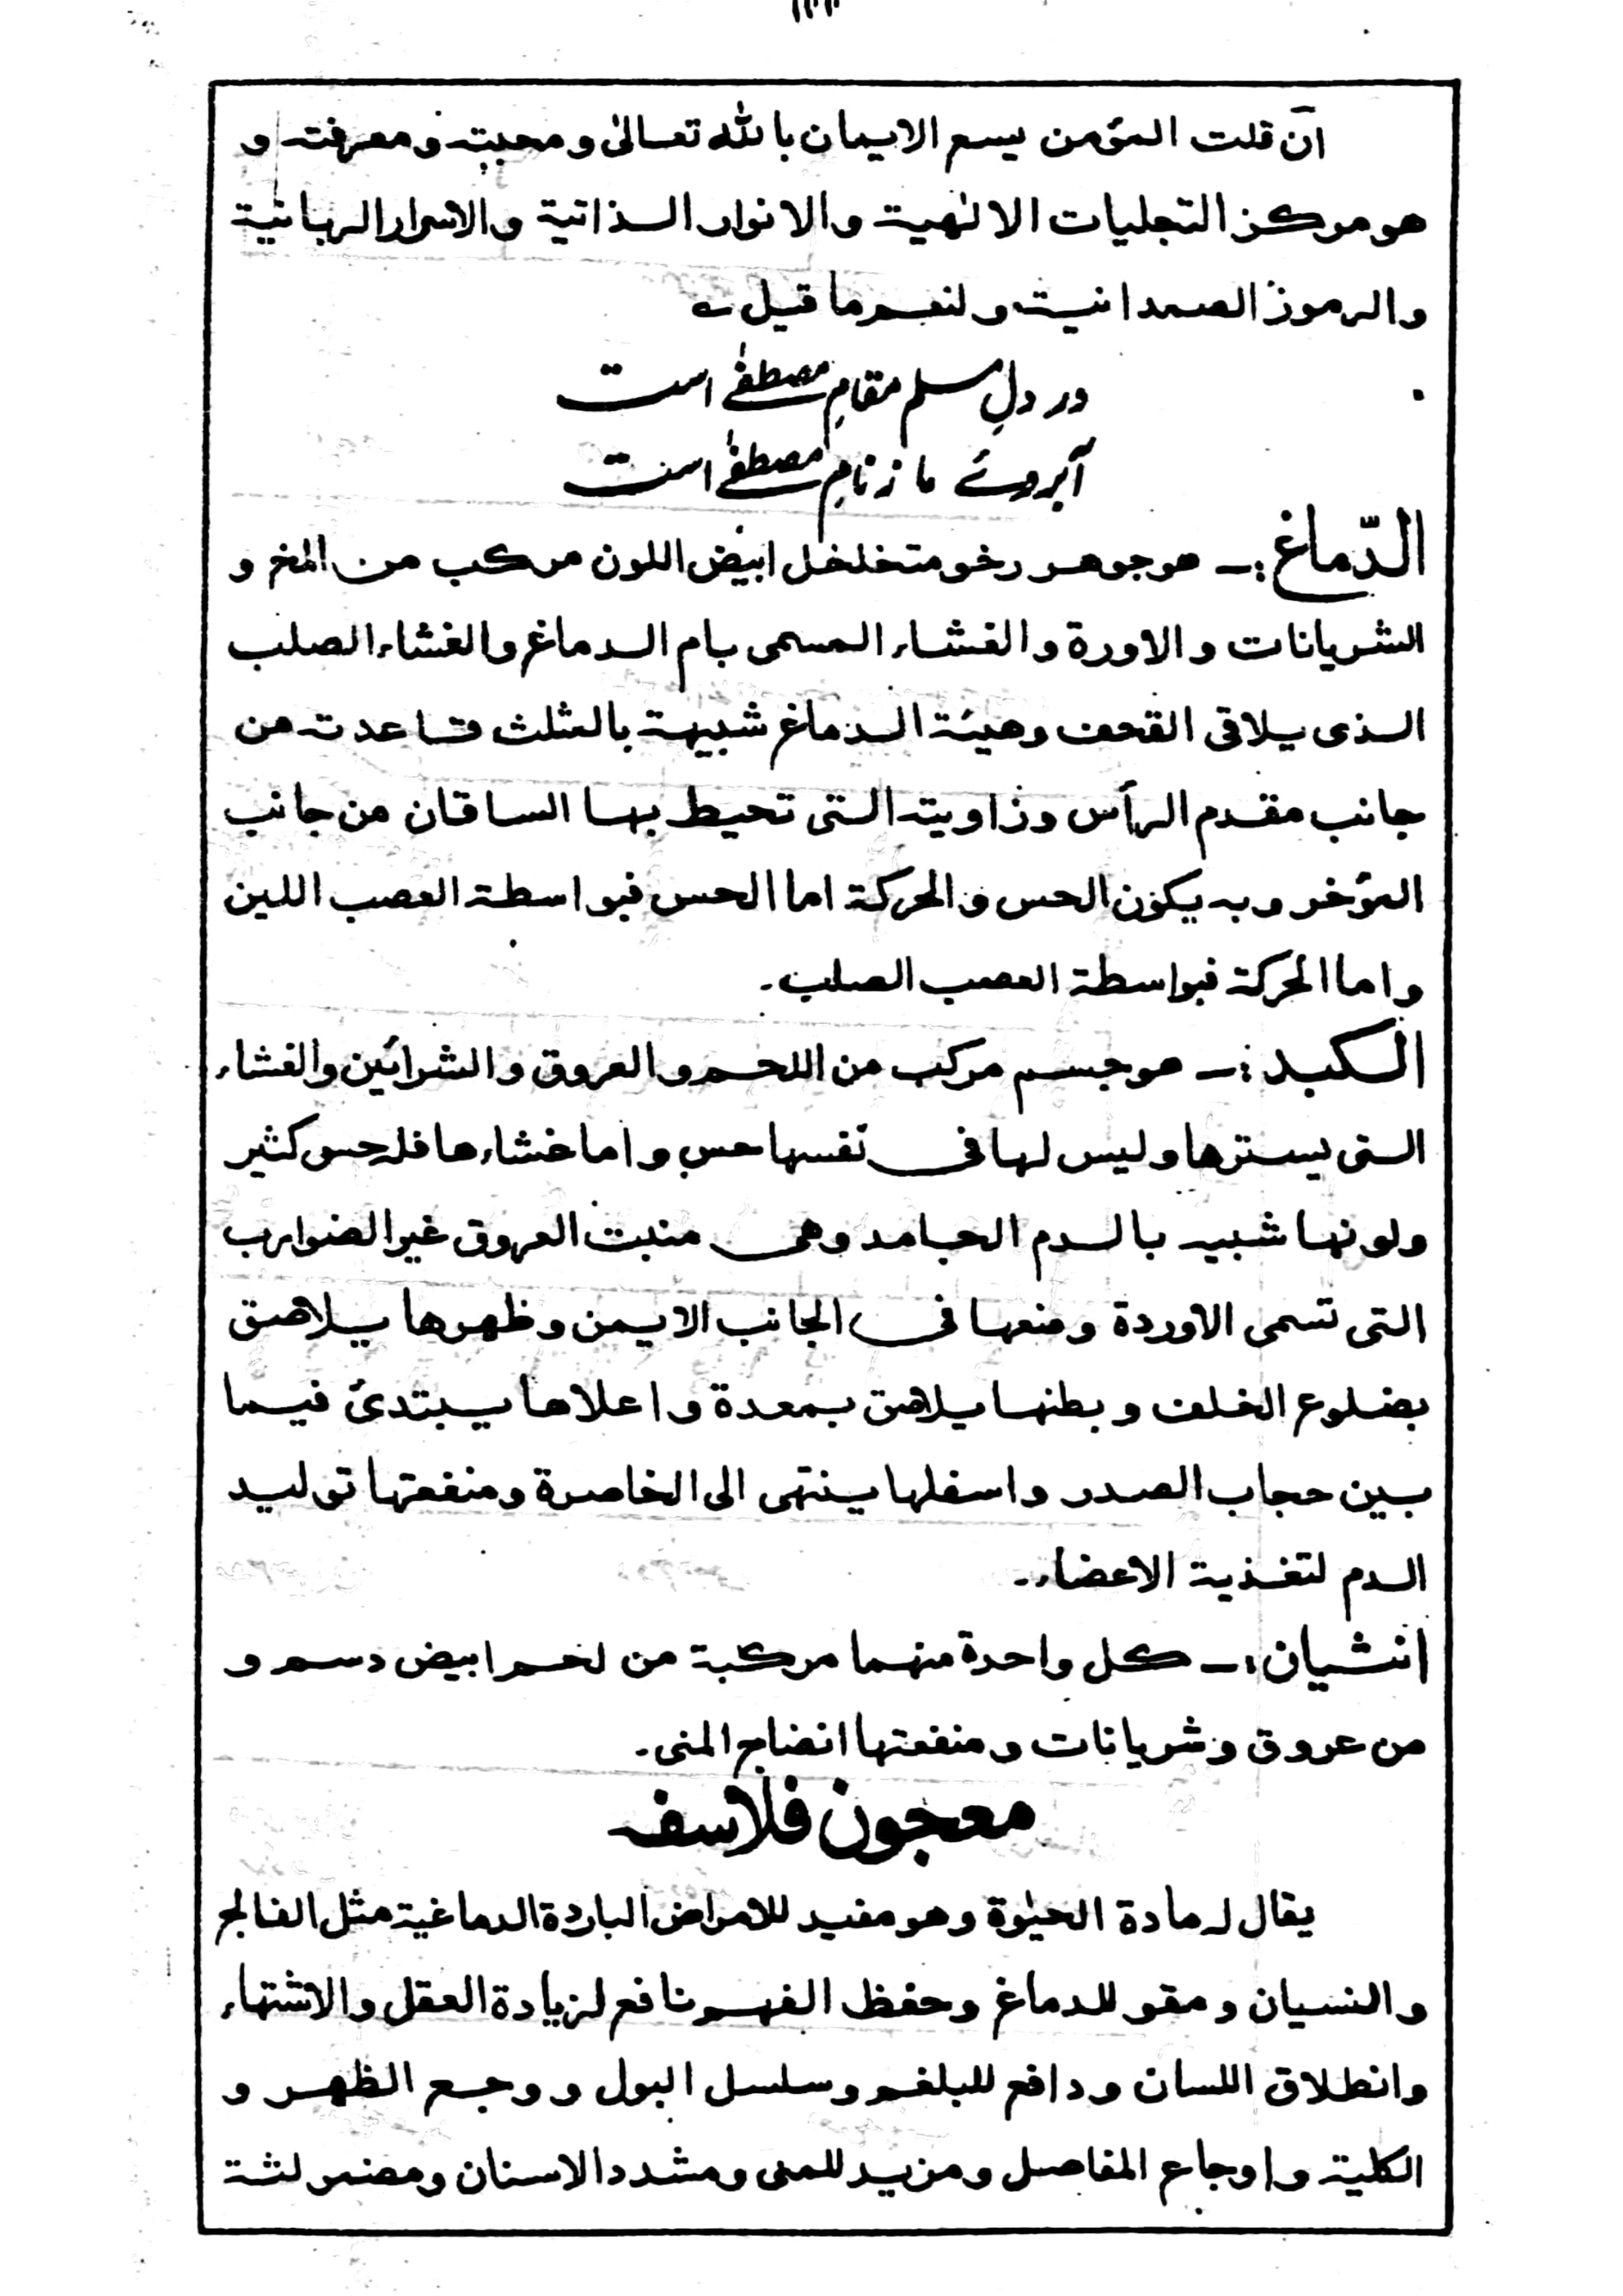 ان قلت المؤمن يسع الايمان بالله تعالىٰ ومحبته ومعرفته و
هو مركز التجليات الالٰهية والانوار الذاتية والاسرار الربانية
والرموز الصمدانية ولنعم ما قيل ؎
در دلِ مسلم مقامِ مصطفےٰ است
آبروئے ما ز نامِ مصطفےٰ است
الدّماغ :ـ هو جوهر رخو متخلخل ابيض اللون مركب من المخ و
الشريانات والاوردة والغشاء المسمى بام الدماغ والغشاء الصلب
الذى يلاقى القحف وهيئة الدماغ شبيهة بالمثلث قاعدته من
جانب مقدم الرأس وزاويته التى تحيط بها الساقان من جانب
المؤخر وبه يكون الحس والحركة اما الحس فبواسطة العصب اللين
واما الحركة فبواسطة العصب الصلب ۔
الكبد :ـ هو جسم مركب من اللحم والعروق والشرائين والغشاء
التى يسترها وليس لها فى نفسها حس واما غشاءها فله حس كثير
ولونها شبيه بالدم الجامد وهى منبت العروق غير الضوارب
التى تسمى الاوردة وضعها فى الجانب الايمن وظهرها يلاصق
بضلوع الخلف وبطنها يلاصق بمعدة واعلاها يبتدئ فيما
بين حجاب الصدر واسفلها ينتهى الى الخاصرة ومنفعتها توليد
الدم لتغذية الاعضاء ۔
انثيان :ـ كل واحدة منهما مركبة من لحم ابيض دسم و
من عروق وشريانات ومنفعتها انضاج المنى ۔
معجون فلاسفه
يقال له مادة الحيٰوة وهو مفيد للامراض الباردة الدماغية مثل الفالج
والنسيان ومقو للدماغ وحفظ الفهم نافع لزيادة العقل والاشتهاء
وانطلاق اللسان ودافع للبلغم وسلسل البول ووجع الظهر و
الكلية واوجاع المفاصل ومزيد للمنى ومشدد الاسنان ومضمر لثة